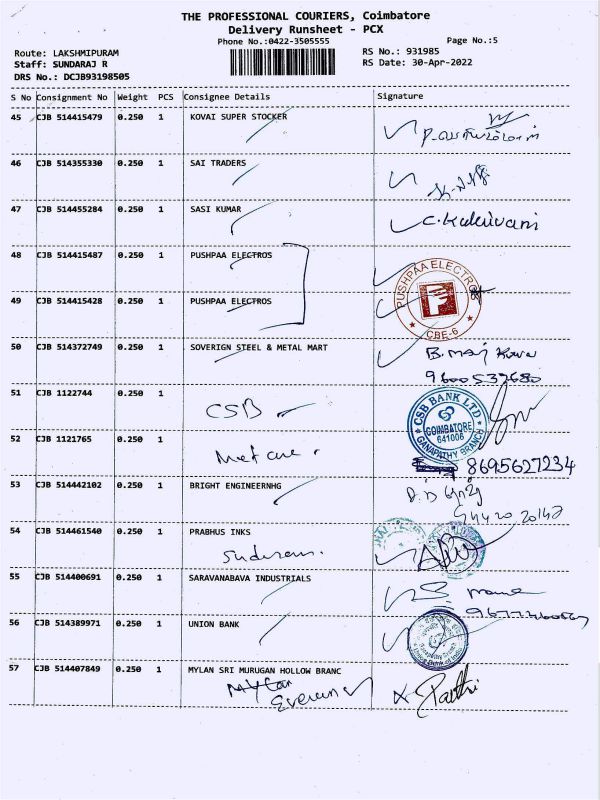 THE PROFESSIONAL COURIERS, Coimbatore
Delivery Runsheet - PCX
Phone No.:0422-3505555 Page No.:5
Route: LAKSHMIPURAM RS No.: 931985
Staff: SUNDARAJ R RS Date: 30-Apr-2022
DRS No.: DCJB93198505
S No Consignment No Weight PCS Consignee Details Signature
45 CJB 514415479 0.250 1 KOVAI SUPER STOCKER
46 CJB 514355330 0.250 1 SAI TRADERS
47 CJB 514455284 0.250 1 SASI KUMAR
C. Kalaivani
48 CJB 514415487 0.250 1 PUSHPAA ELECTROS
PUSHPAA ELECTROS
49 CJB 514415428 0.250 1 PUSHPAA ELECTROS
CBE-6
50 CJB 514372749 0.250 1 SOVERIGN STEEL & METAL MART
9600532680
51 CJB 1122744 0.250 1
CSB
CSB BANK LTD
COIMBATORE
641006
GANAPATHY BRANCH
52 CJB 1121765 0.250 1
8695627234
53 CJB 514442102 0.250 1 BRIGHT ENGINEERNHG
54 CJB 514461540 0.250 1 PRABHUS INKS
55 CJB 514400691 0.250 1 SARAVANABAVA INDUSTRIALS
56 CJB 514389971 0.250 1 UNION BANK
57 CJB 514407849 0.250 1 MYLAN SRI MURUGAN HOLLOW BRANC
Mylan